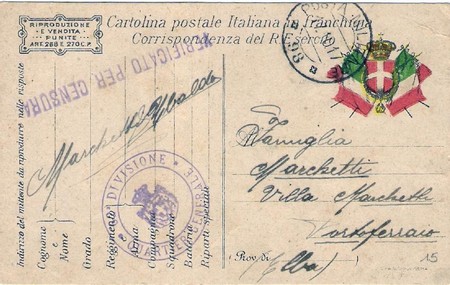 RIPRODUZIONE
E VENDITA
PUNITE
ART. 268 E 270 C.P.
Cartolina postale Italiana in franchigia
Corrispondenza del R. Esercito
POSTA
VERIFICATO PER CENSURA
Indirizzo del mittente da riprodurre nelle risposte
Cognome e Nome
Grado
Reggimento
Arma
Compagnia
Squadrone
Batteria
Riparti speciali
Marchetti Ubaldo
DIVISIONE
QUARTIER GENERALE
Famiglia
Marchetti
Villa Marchetti
Portoferraio
Prov. di
(Elba)
15